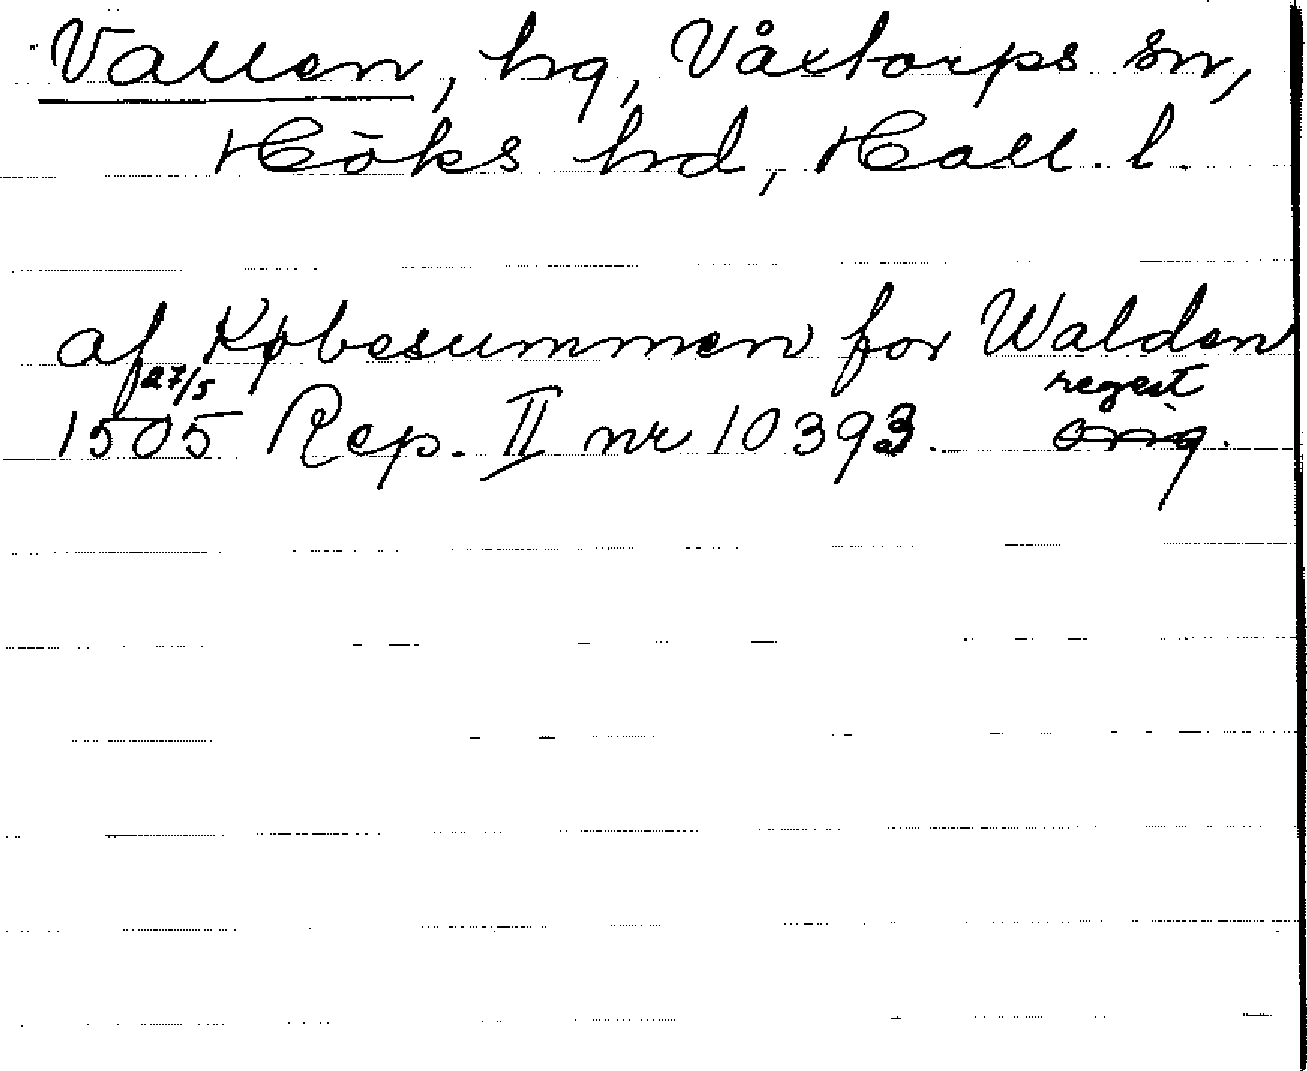 Vallen, hg, Våxtorps sn,
Höks hd, Hall. l.
af Købesummen for Walden
27/5 regest
1505 Rep. II nr 10393. orig.